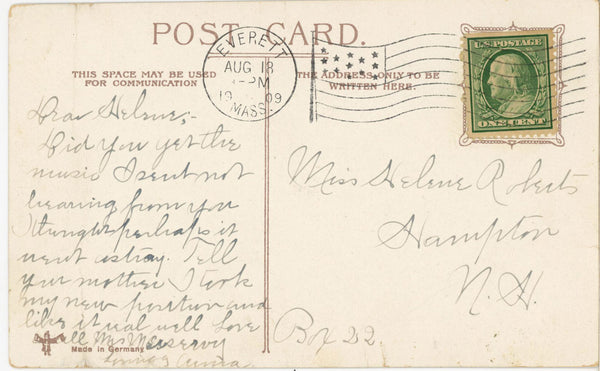 POST CARD.
EVERETT
AUG 18
PM
19 09
MASS.
U.S. POSTAGE
ONE CENT
THIS SPACE MAY BE USED
FOR COMMUNICATION
THE ADDRESS ONLY TO BE
WRITTEN HERE.
Dear Helene,-
Did you get the
music I sent not
hearing from you
I thought perhaps it
went astray. Tell
your mother I took
my new position and
like it real well Love
Mrs Meservy
Anna
Made in Germany
Miss Helene Roberts
Hampton
N.H.
Box 22